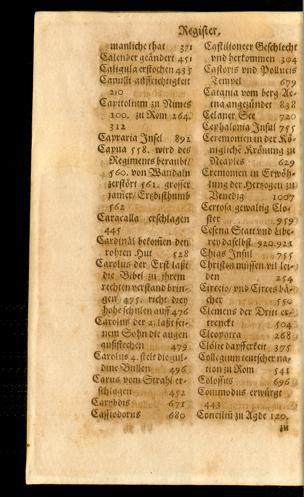 Register,
manliche that 371
Calender geändert 451
Caligula erstochen 435
Canulli auffrichtigkeit
210
Capitolium zu Nimes
100. zu Rom 264.
312
Capraria Insel 892
Capua 558. wird des
Regiments beraubt/
560. von Wandaln
zerstört 561. grosser
jamer/ Ertzbisthumb
562
Caracalla erschlagen
445
Cardinäl bekomen den
rohten Hut 528
Carolus der Erst laßt
die Bibel zu ihrem
rechten verstand brin-
gen 475. richt drey
hohe schulen auf 476
Carolus der 2. laßt sei-
nem Sohn die augen
außstechen 479
Carolus 4. stelt die gul-
dine Bullen 496
Carus vom Strahl er-
schlagen 452
Carybdis 671
Cassiodorus 680
Castilioneer Geschlecht
vnd herkommen 304
Castoris vnd Pollucis
Tempel 679
Catania vom berg Aet-
na angezündet 838
Celaner See 720
Cephalonia Insul 755
Ceremonien in der Kö-
nigliche Krönung zu
Neaples 629
Ceremonien in Erwöh-
lung der Hertzogen zu
Venedig 1007
Certosa gewaltig Clo-
ster 959
Cesena Statt vnd Libe-
rey daselbst 920.923
Chias Insul 755
Christen müssen vil lei-
den 254
Circeio/ vnd Circes bä-
cher 550
Clemens der Dritt er-
trenckt 504
Cleopatra 268
375
Collegium teutscher na-
tion zu Rom 541
Colossus 696
Commodus erwürgt
443
Conciliũ zu Agde 120.
zu